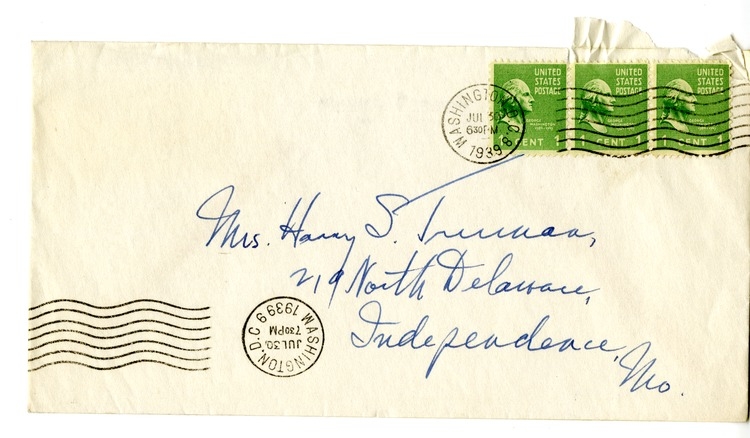 UNITED STATES POSTAGE
GEORGE WASHINGTON
CENT 1
UNITED STATES POSTAGE
GEORGE WASHINGTON
1 CENT 1
UNITED STATES POSTAGE
GEORGE WASHINGTON
1 CENT 1
WASHINGTON, D.C. 8
JUL 30
630PM
1939
Mrs. Harry S. Truman,
219 North Delaware,
Independence, Mo.
WASHINGTON, D.C 9
JUL 30
730PM
1939